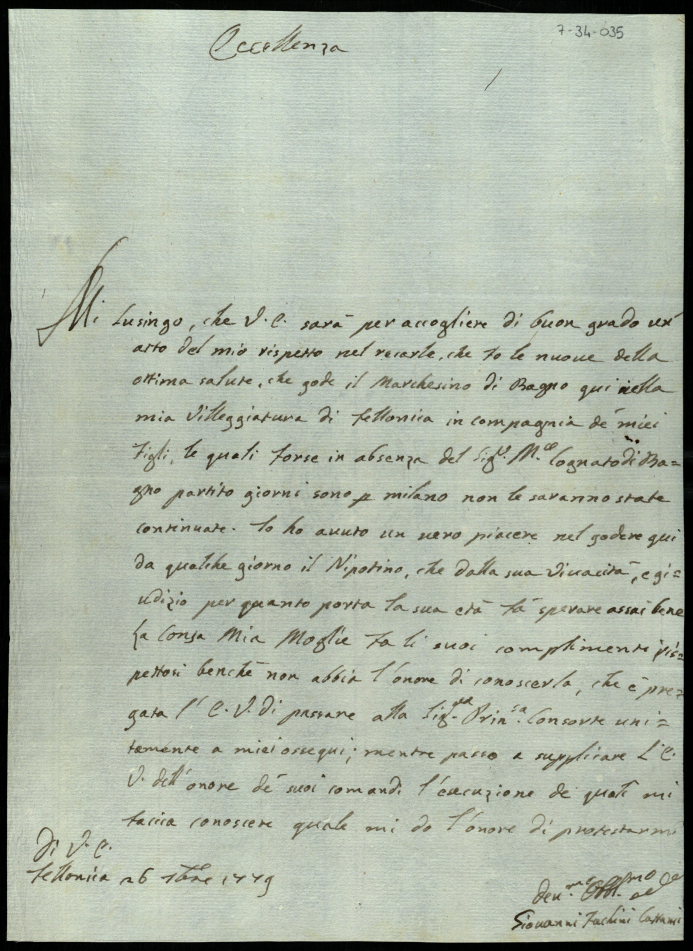 7-34-035
Eccellenza
Mi Lusingo, che V. E. sarà per accogliere di buon grado un'
atto del mio rispetto nel recarle, che fo le nuove della
ottima salute, che gode il Marchesino di Bagno qui nella
mia Villeggiatura di Fellonica in compagnia de' miei
Figli, le quali forse in absenza del Sigr. M.se Cognato di Ba=
gno partito giorni sono p milano non le saranno state
continuate. Io ho avuto un vero piacere nel godere qui
da qualche giorno il Nipotino, che dalla sua vivacità, e gi=
udizio per quanto porta la sua età fà sperare assai bene
La Consa Mia Moglie fa li suoi complimenti ris=
pettosi benchè non abbia l'onore di conoscerla, che è pre=
gata l'E. V. di passare alla Sigra Prinsa. Consorte uni=
tamente a miei ossequi; mentre passo a supplicare L'E.
V. dell'onore de' suoi comandi l'esecuzione de quali mi
faccia conoscere quale mi do l'onore di protestarmi
Di V. E.
Fellonica 26 7bre 1779
Devmo Obblmo
Giovanni Fachini